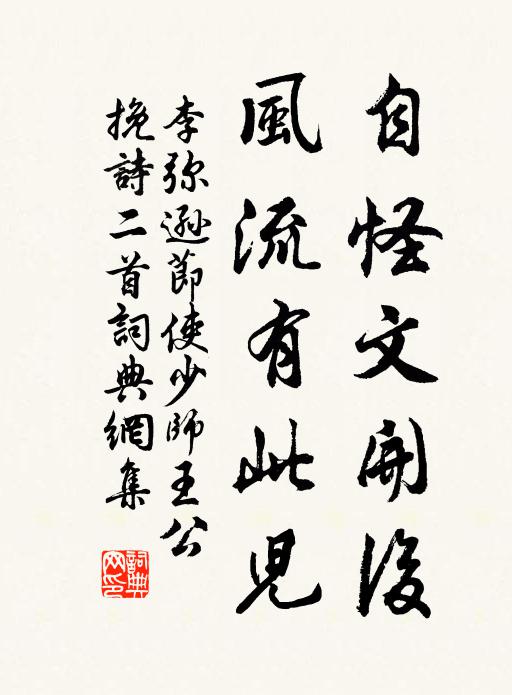 自怪文開後
風流有此兒
李弥遜節使少師王公
挽詩二首詞典網集
詞典
网印